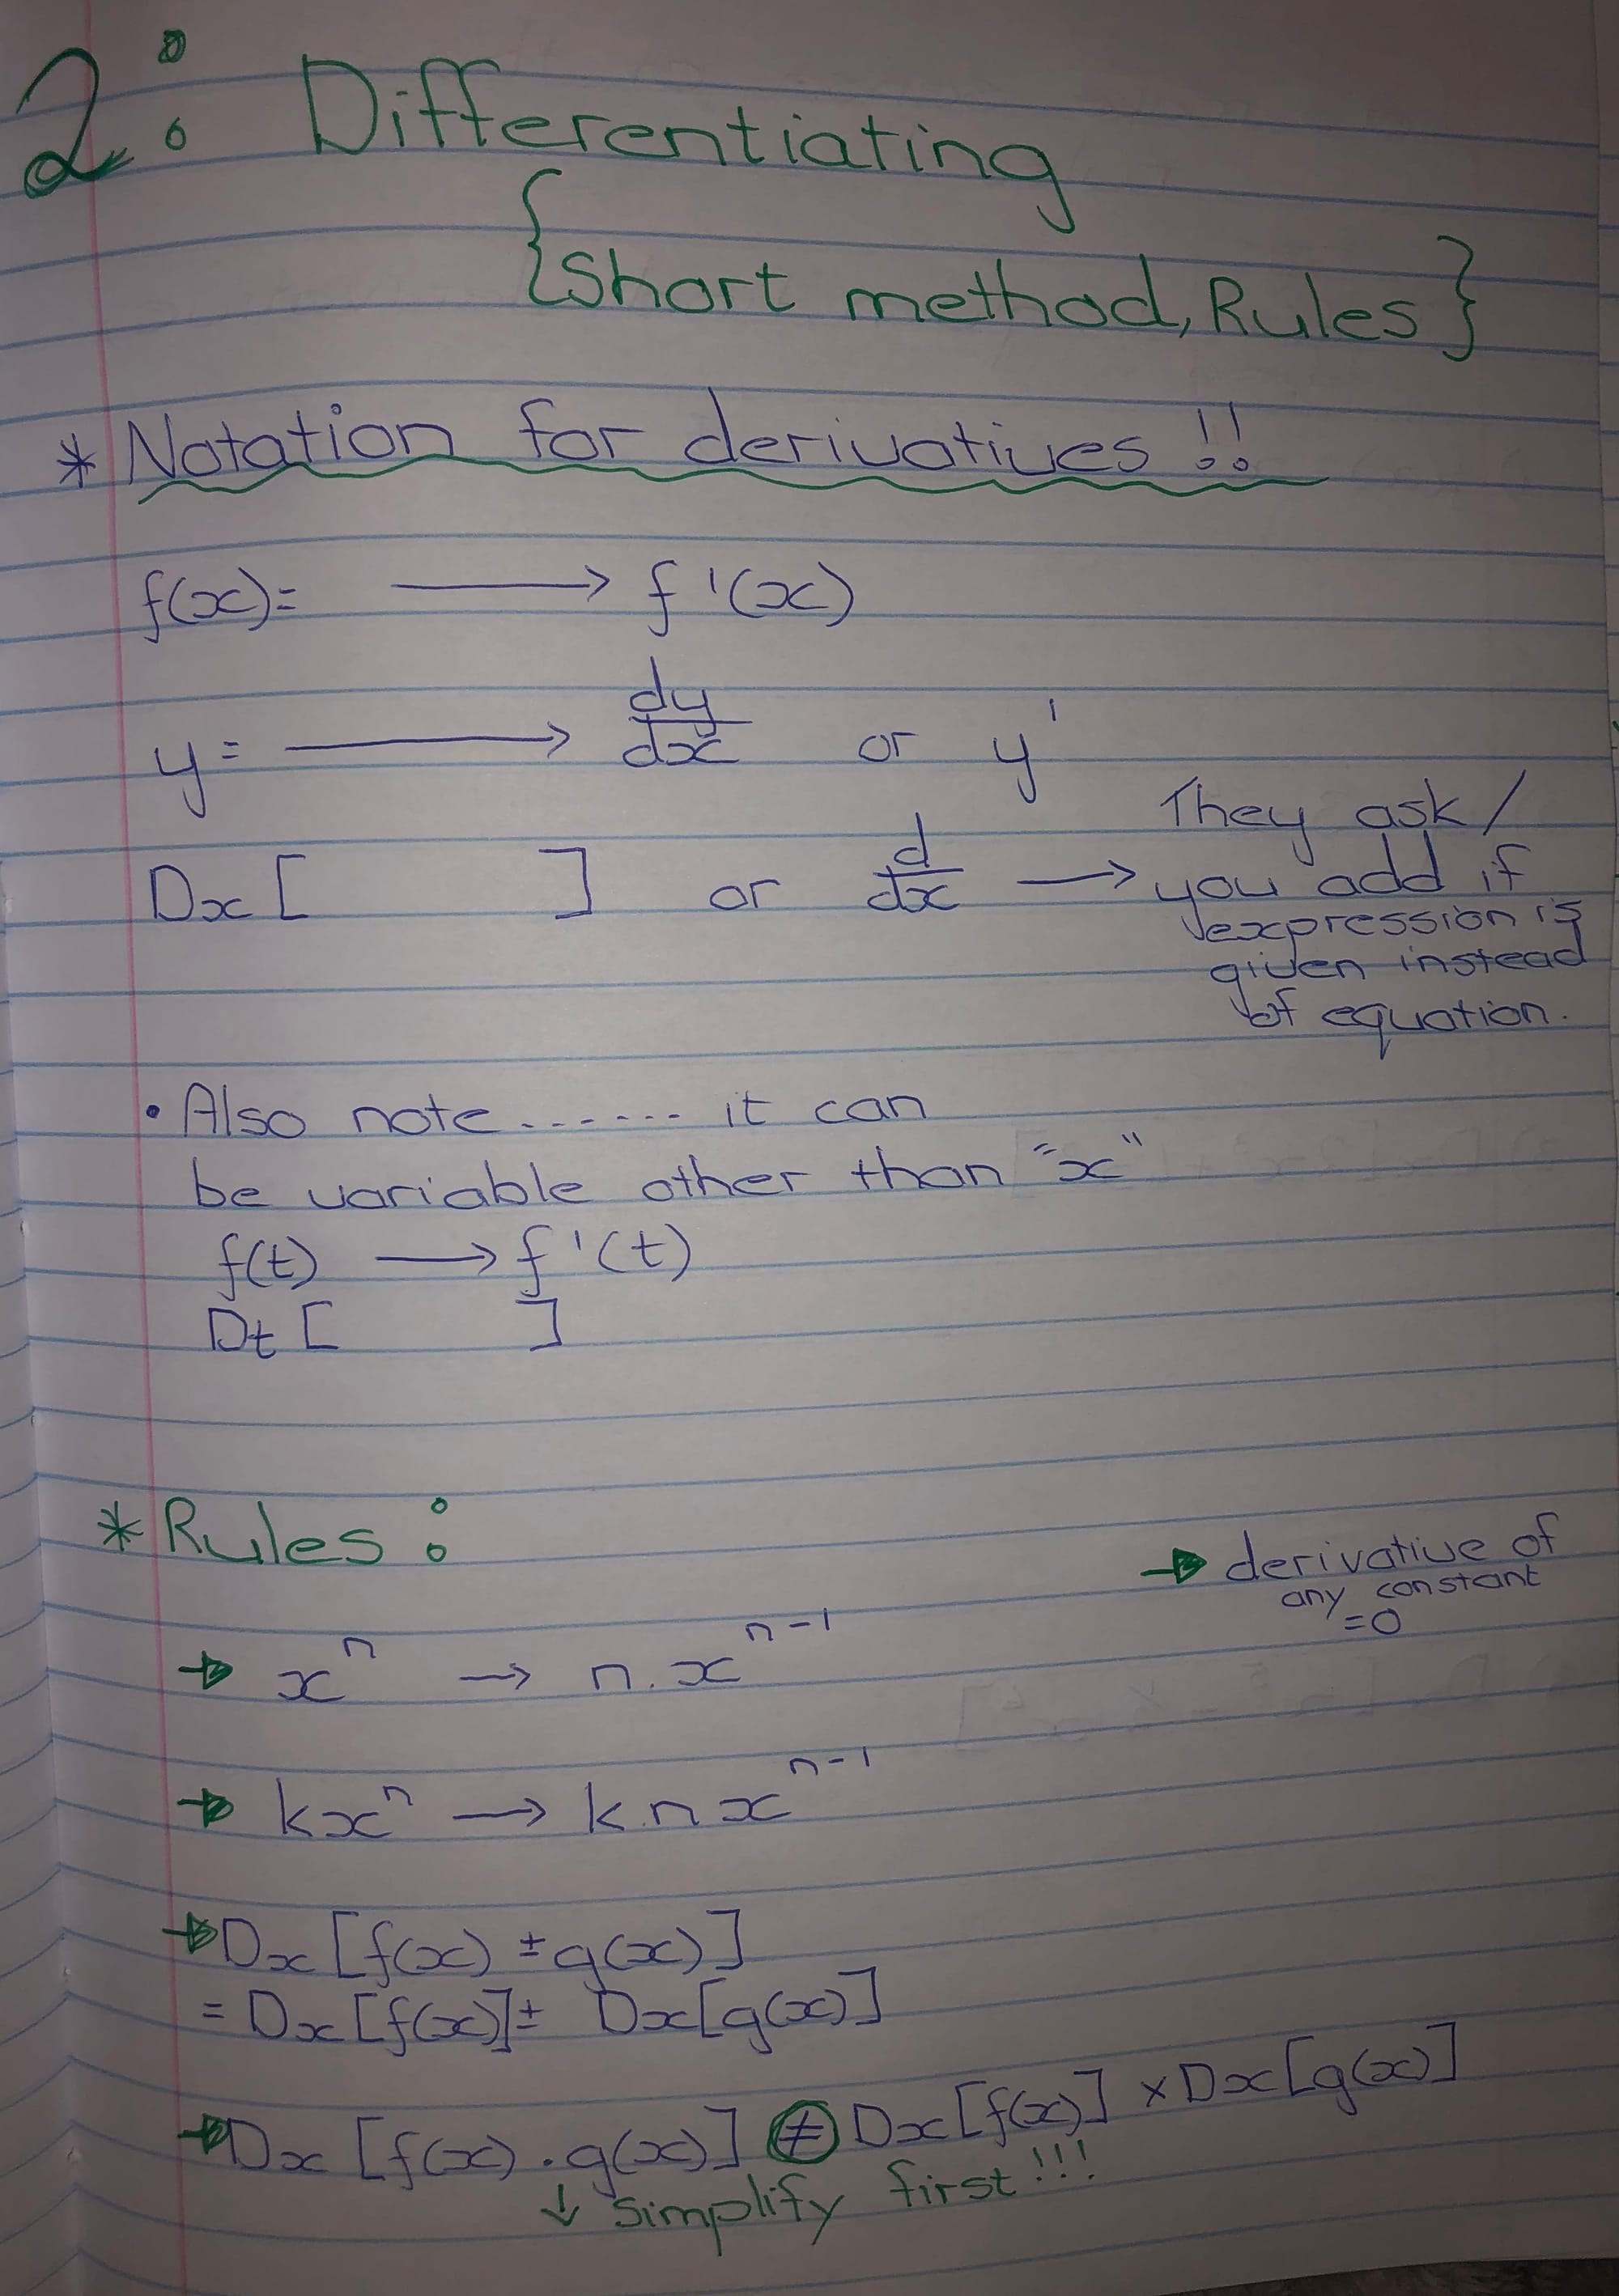 2: Differentiating
{Short method, Rules}
* Notation for derivatives !!
f(x)= → f'(x)
y= → dy/dx or y'
Dx [ ] or d/dx → They ask/
you add if
expression is
given instead
of equation.
• Also note....... it can
be variable other than "x"
f(t) → f'(t)
Dt [ ]
* Rules:
→ derivative of
any constant
=0
→ xⁿ → n.xⁿ⁻¹
→ kxⁿ → k.nxⁿ⁻¹
→ Dx [f(x) ± g(x)]
= Dx [f(x)] ± Dx [g(x)]
→ Dx [f(x) . g(x)] ≠ Dx [f(x)] × Dx [g(x)]
↓ simplify first!!!